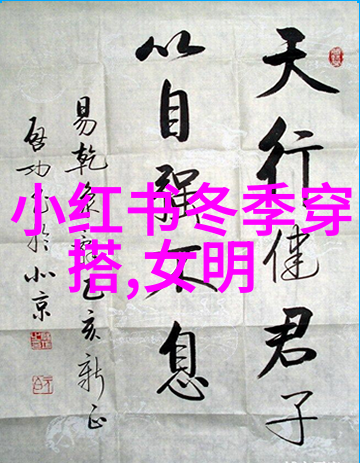 小红书冬季穿
搭,女明
天行健君子
以自强不息
易乾象 乙亥新正
启功 於北京